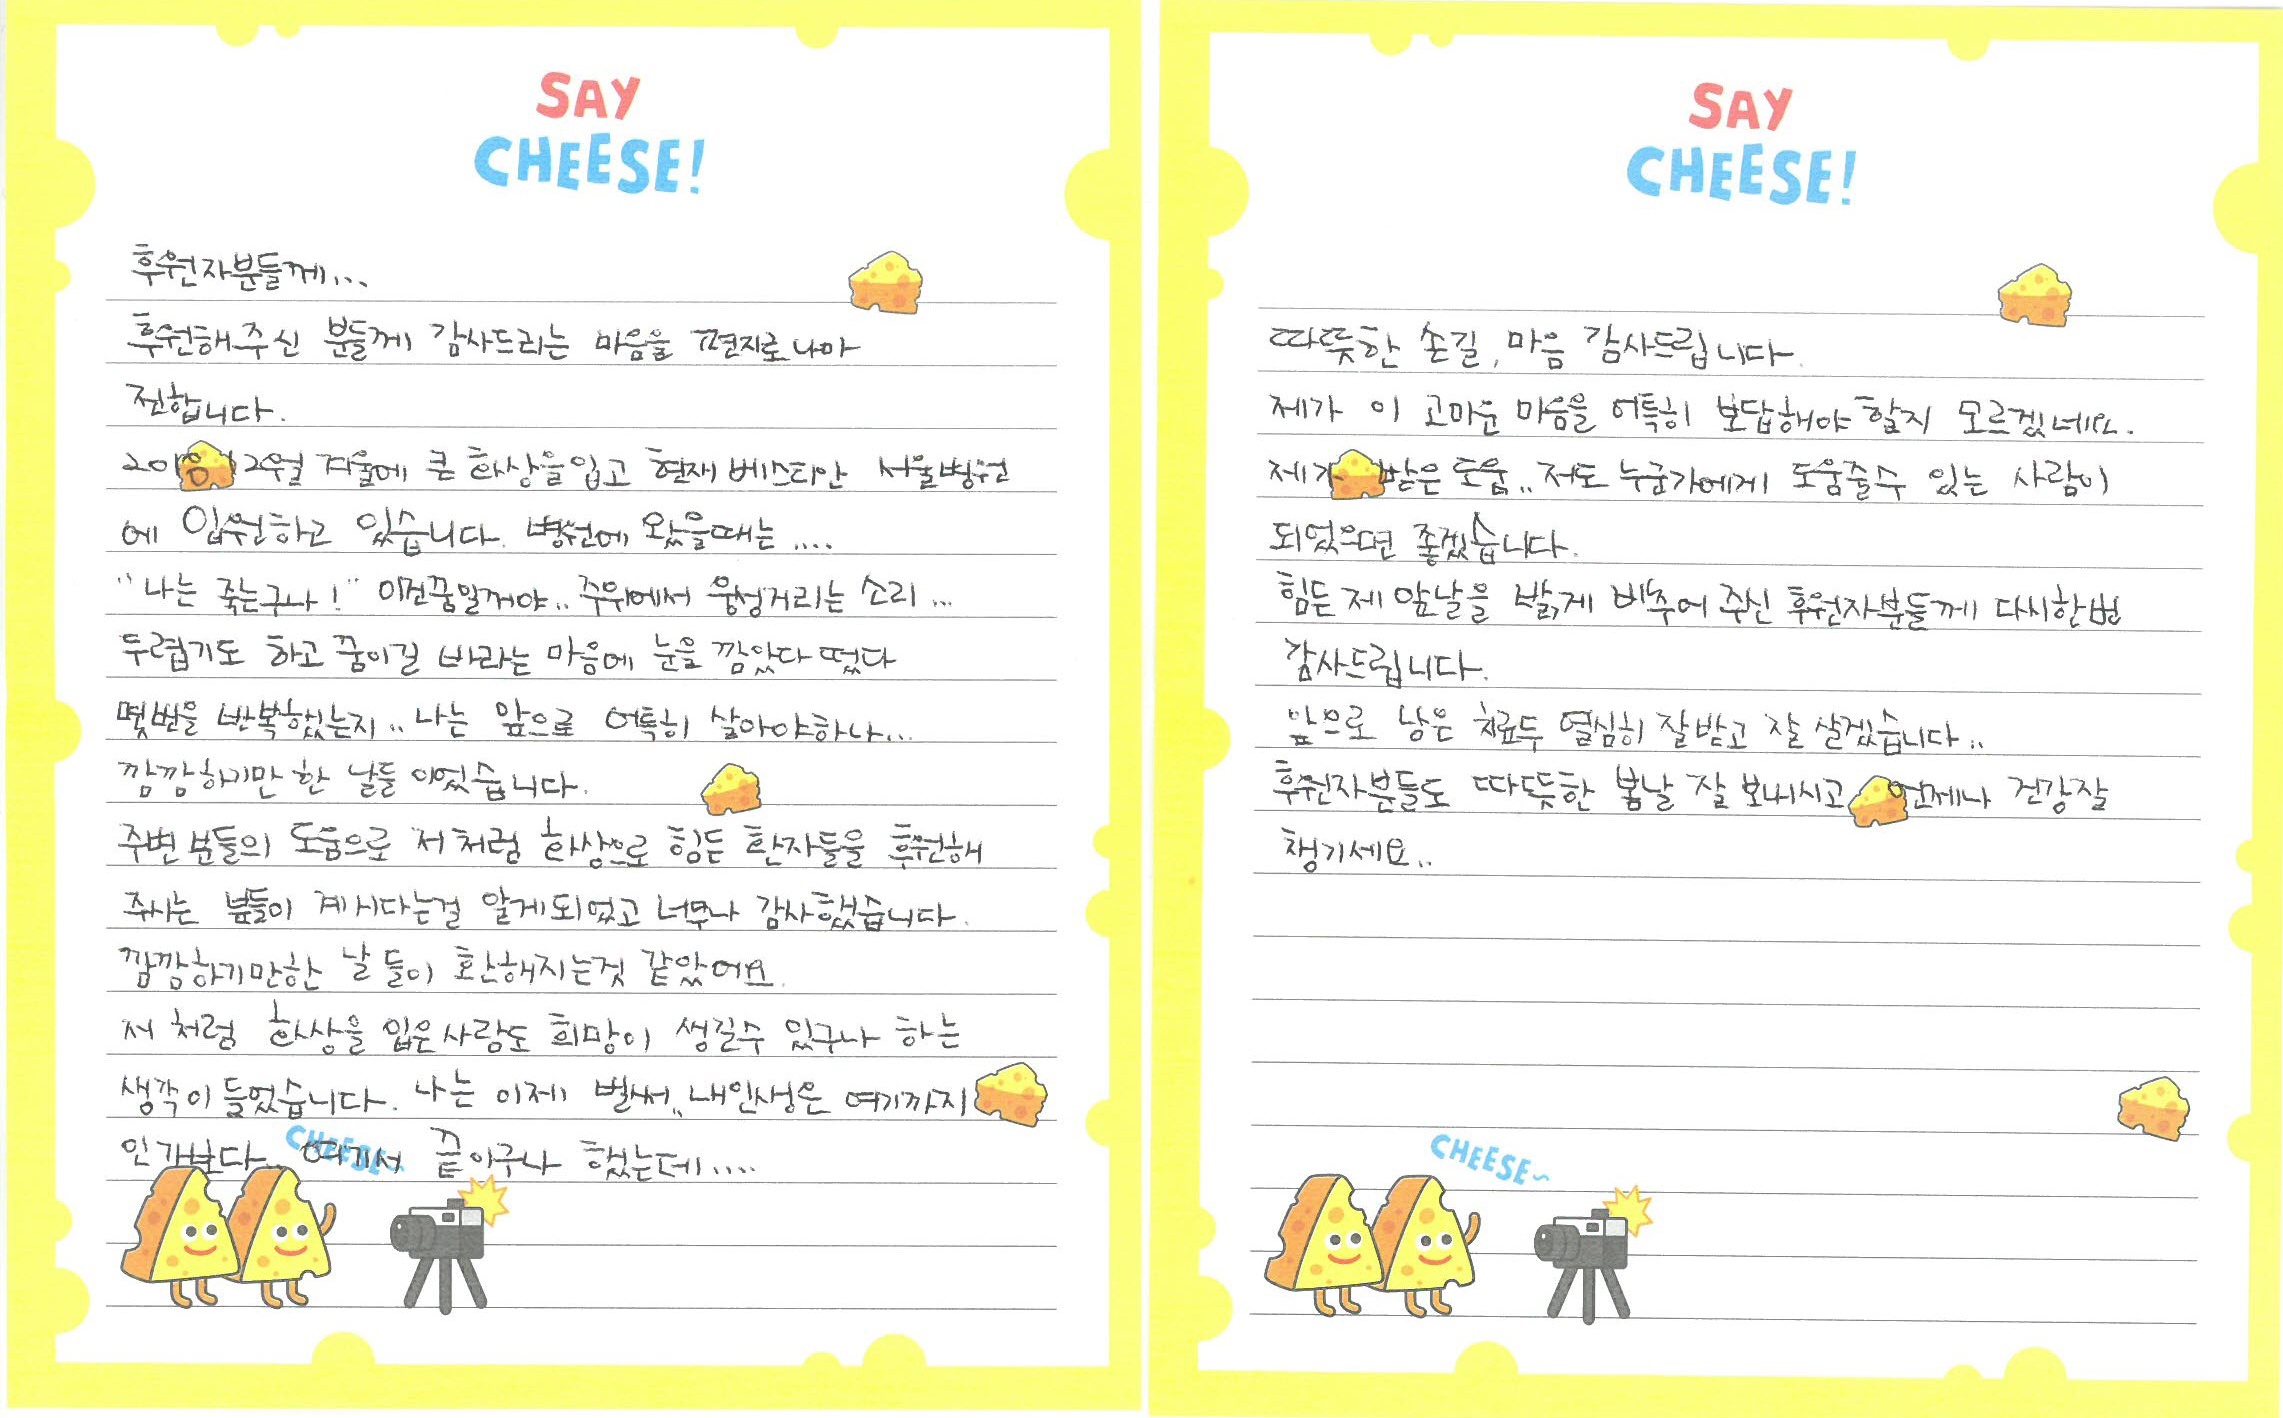 SAY
CHEESE!
후원자분들께...
후원해주신 분들께 감사드리는 마음을 편지로나마
전합니다.
12월 겨울에 큰 화상을입고 현재 베스티안 서울병원
에 입원하고 있습니다. 병원에 왔을때는 ....
"나는 죽는구나!" 이건꿈일꺼야.. 주위에서 웅성거리는 소리...
두렵기도 하고 꿈이길 바라는 마음에 눈을 깜았다 떴다
몇번을 반복했는지.. 나는 앞으로 어특히 살아야하나...
깜깜하기만 한 날들 이었습니다.
주변 분들의 도움으로 저 처럼 화상으로 힘든 환자들을 후원해
주시는 분들이 계시다는걸 알게되었고 너무나 감사했습니다.
깜깜하기만한 날 들이 환해지는것 같았어요.
저 처럼 화상을 입은사람도 희망이 생길수 있구나 하는
생각이 들었습니다. 나는 이제 벌써.. 내인생은 여기까지
인가보다.. 여기서 끝이구나 했는데.....
CHEESE~
SAY
CHEESE!
따뜻한 손길, 마음 감사드립니다.
제가 이 고마운 마음을 어특히 보답해야 할지 모르겠네요.
제가 받은 도움.. 저도 누군가에게 도움줄수 있는 사람이
되었으면 좋겠습니다.
힘든 제 앞날을 밝게 비추어 주신 후원자분들께 다시한번
감사드립니다.
앞으로 남은 치료두 열심히 잘받고 잘 살겠습니다..
후원자분들도 따뜻한 봄날 잘 보내시고 언제나 건강잘
챙기세요..
CHEESE~